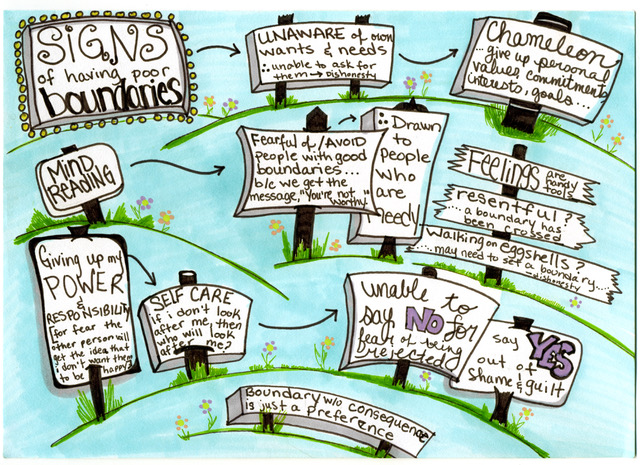 SIGNS
of having poor
boundaries
UNAWARE of own
wants & needs
∴ unable to ask for
them → Dishonesty
Chameleon
...give up personal
values, commitments
interests, goals...
MIND
READING
Fearful of/AVOID
people with good
boundaries...
b/c we get the
message, "You're not
worthy."
∴ Drawn
to
People
who
are
needy
Feelings are
handy
tools
resentful?
... a boundary has
been crossed
walking on eggshells?
....may need to set a boundary....
dishonesty
Giving up my
POWER
&
RESPONSIBILITY
[for fear the
other person will
get the idea that
i don't want them
to be happy?]
SELF CARE
if i don't look
after me, then
who will look
after me?
unable to
say NO for
fear of being
rejected
say YES
out of
shame & guilt
Boundary w/o consequence
is just a preference